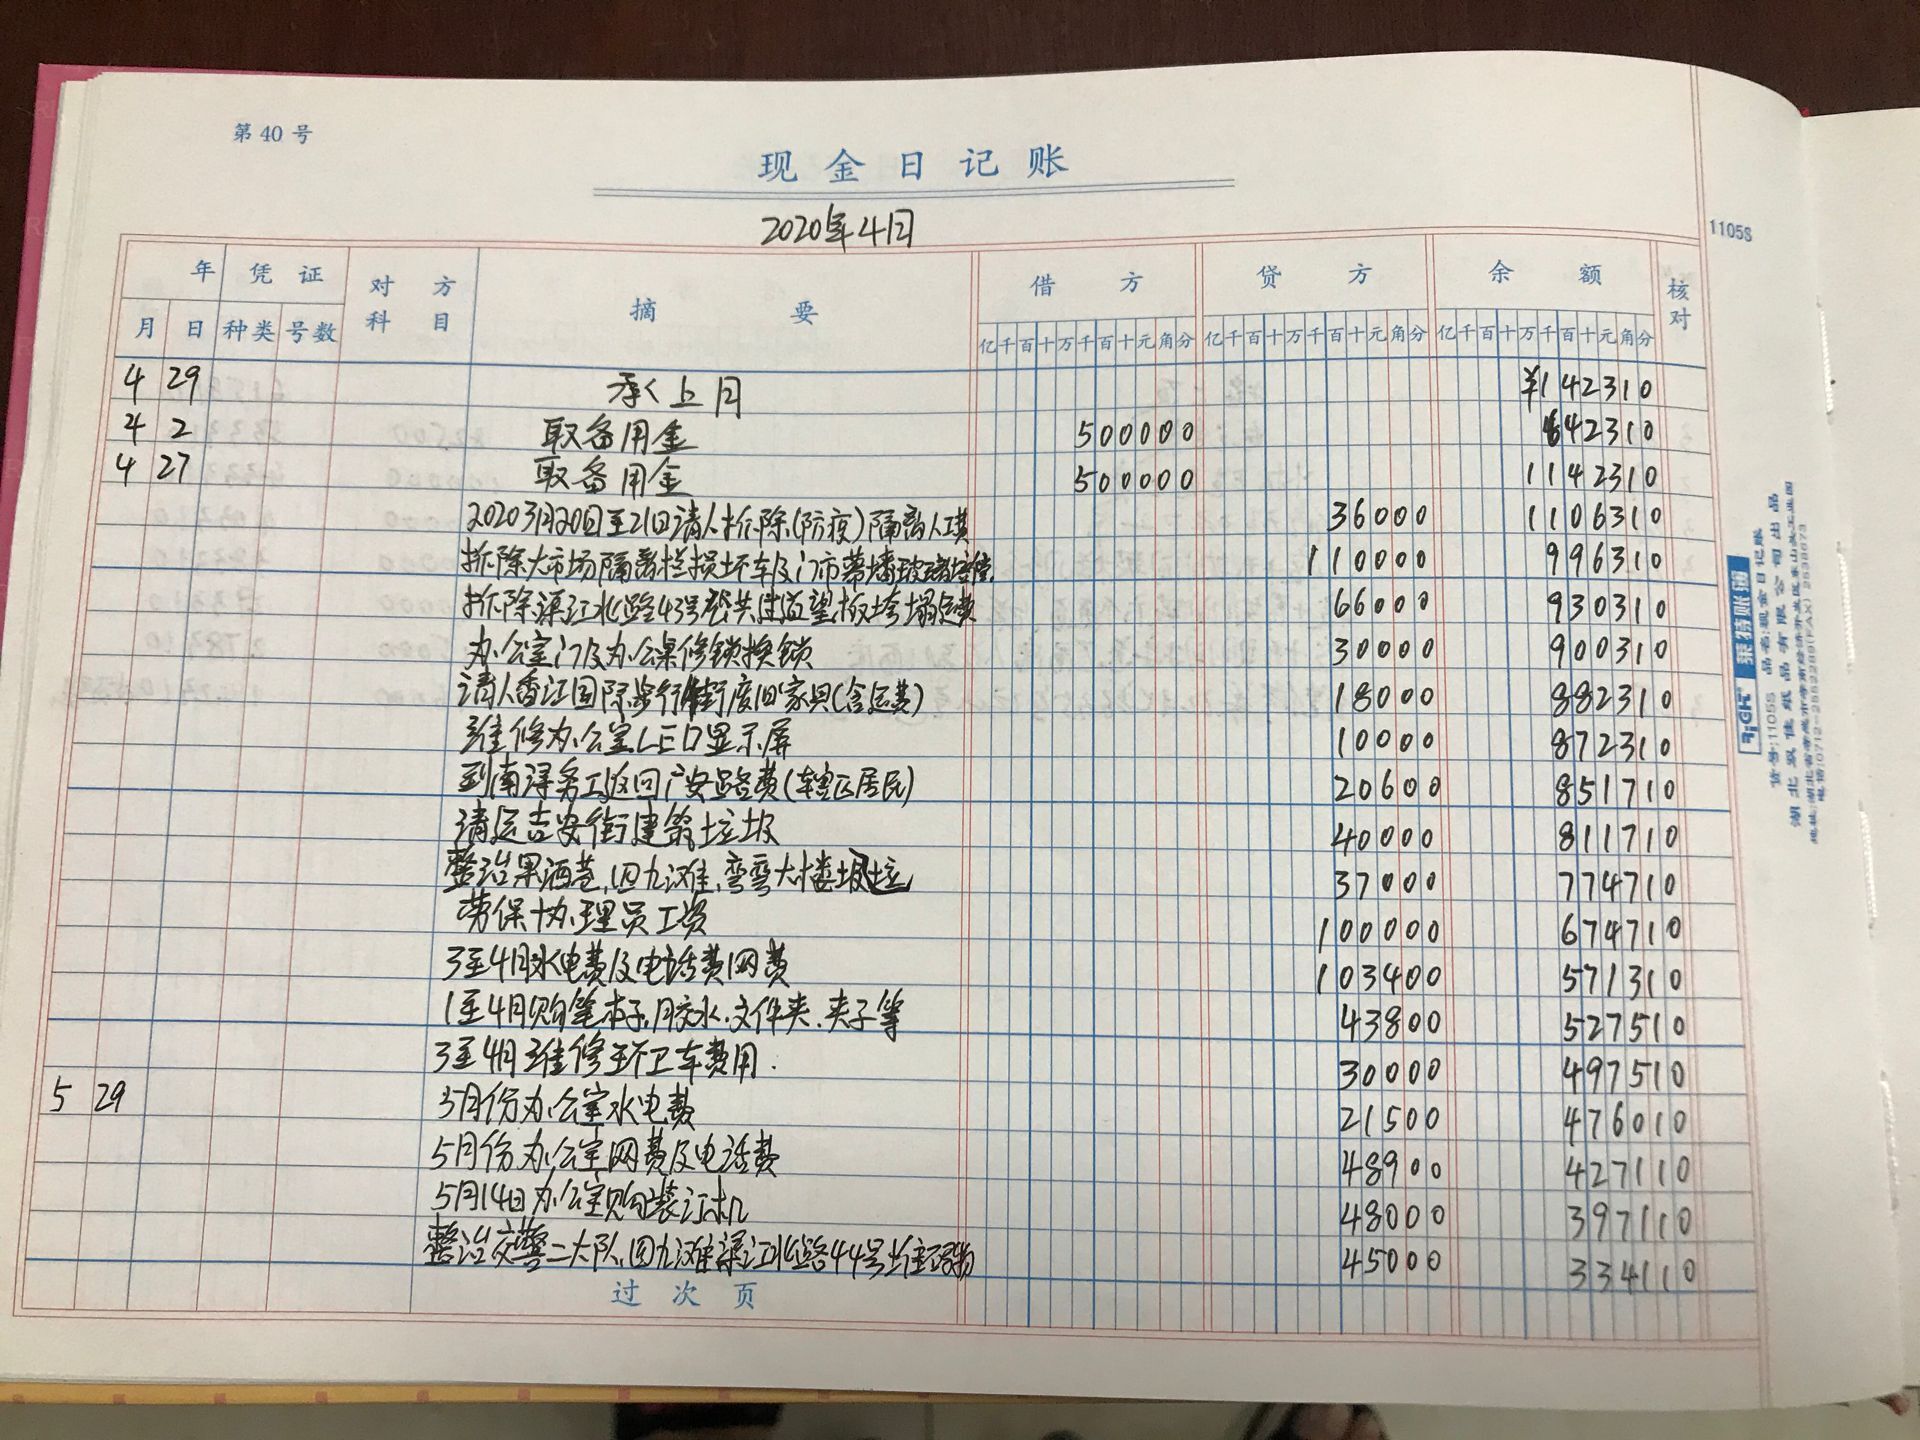 第 40 号
现金日记账
2020年4月
1105S
年 凭证 对方科目 摘要 借方 贷方 余额 核对
月 日 种类 号数 亿千百十万千百十元角分 亿千百十万千百十元角分 亿千百十万千百十元角分
4 29 承上月 ¥142310
4 2 取备用金 500000 642310
4 27 取备用金 500000 1142310
2020 3月20日至21日请人拆除(防疫)隔离人工费 36000 1106310
拆除大市场隔离栏损坏车及门市幕墙玻璃 110000 996310
拆除渠江北路43号 垮塌 费 66000 930310
办公室门及办公桌修锁换锁 30000 900310
请人香江国际步行街 废旧家具(含运费) 18000 882310
维修办公室LED显示屏 10000 872310
到南浔务工返回广安路费(辖区居民) 20600 851710
请运吉安街建筑垃圾 40000 811710
整治果酒巷,四九滩,弯弯大楼垃圾 37000 774710
劳保协理员工资 100000 674710
3至4月水电费及电话费网费 103400 571310
1至4月购笔本子,胶水,文件夹,夹子等 43800 527510
3至4月维修环卫车费用 30000 497510
5 29 5月份办公室水电费 21500 476010
5月份办公室网费及电话费 48900 427110
5月14日办公室购装订机 48000 397110
整治交警二大队,四九滩渠江北路44号堆码物 45000 334110
过次页
RIGHT 莱特账簿
货号:1105S 品名:现金日记账